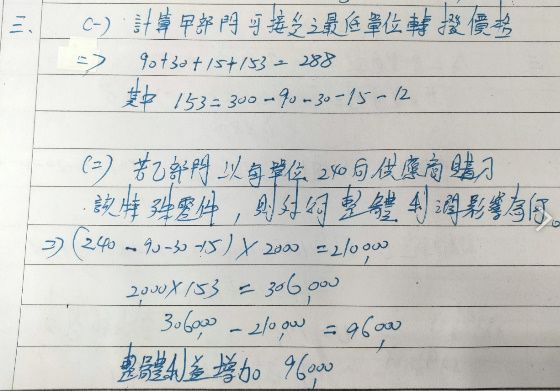 三、(一) 計算甲部門可接受之最低單位轉撥價格
=> 90+30+15+153 = 288
其中 153 = 300 - 90 - 30 - 15 - 12
(二) 若乙部門以每單位 240 向供應商購買
該特殊零件，則對公司整體利潤影響為何。
=> (240 - 90 - 30 - 15) × 2000 = 210,000
2,000 × 153 = 306,000
306,000 - 210,000 = 96,000
整體利益增加 96,000